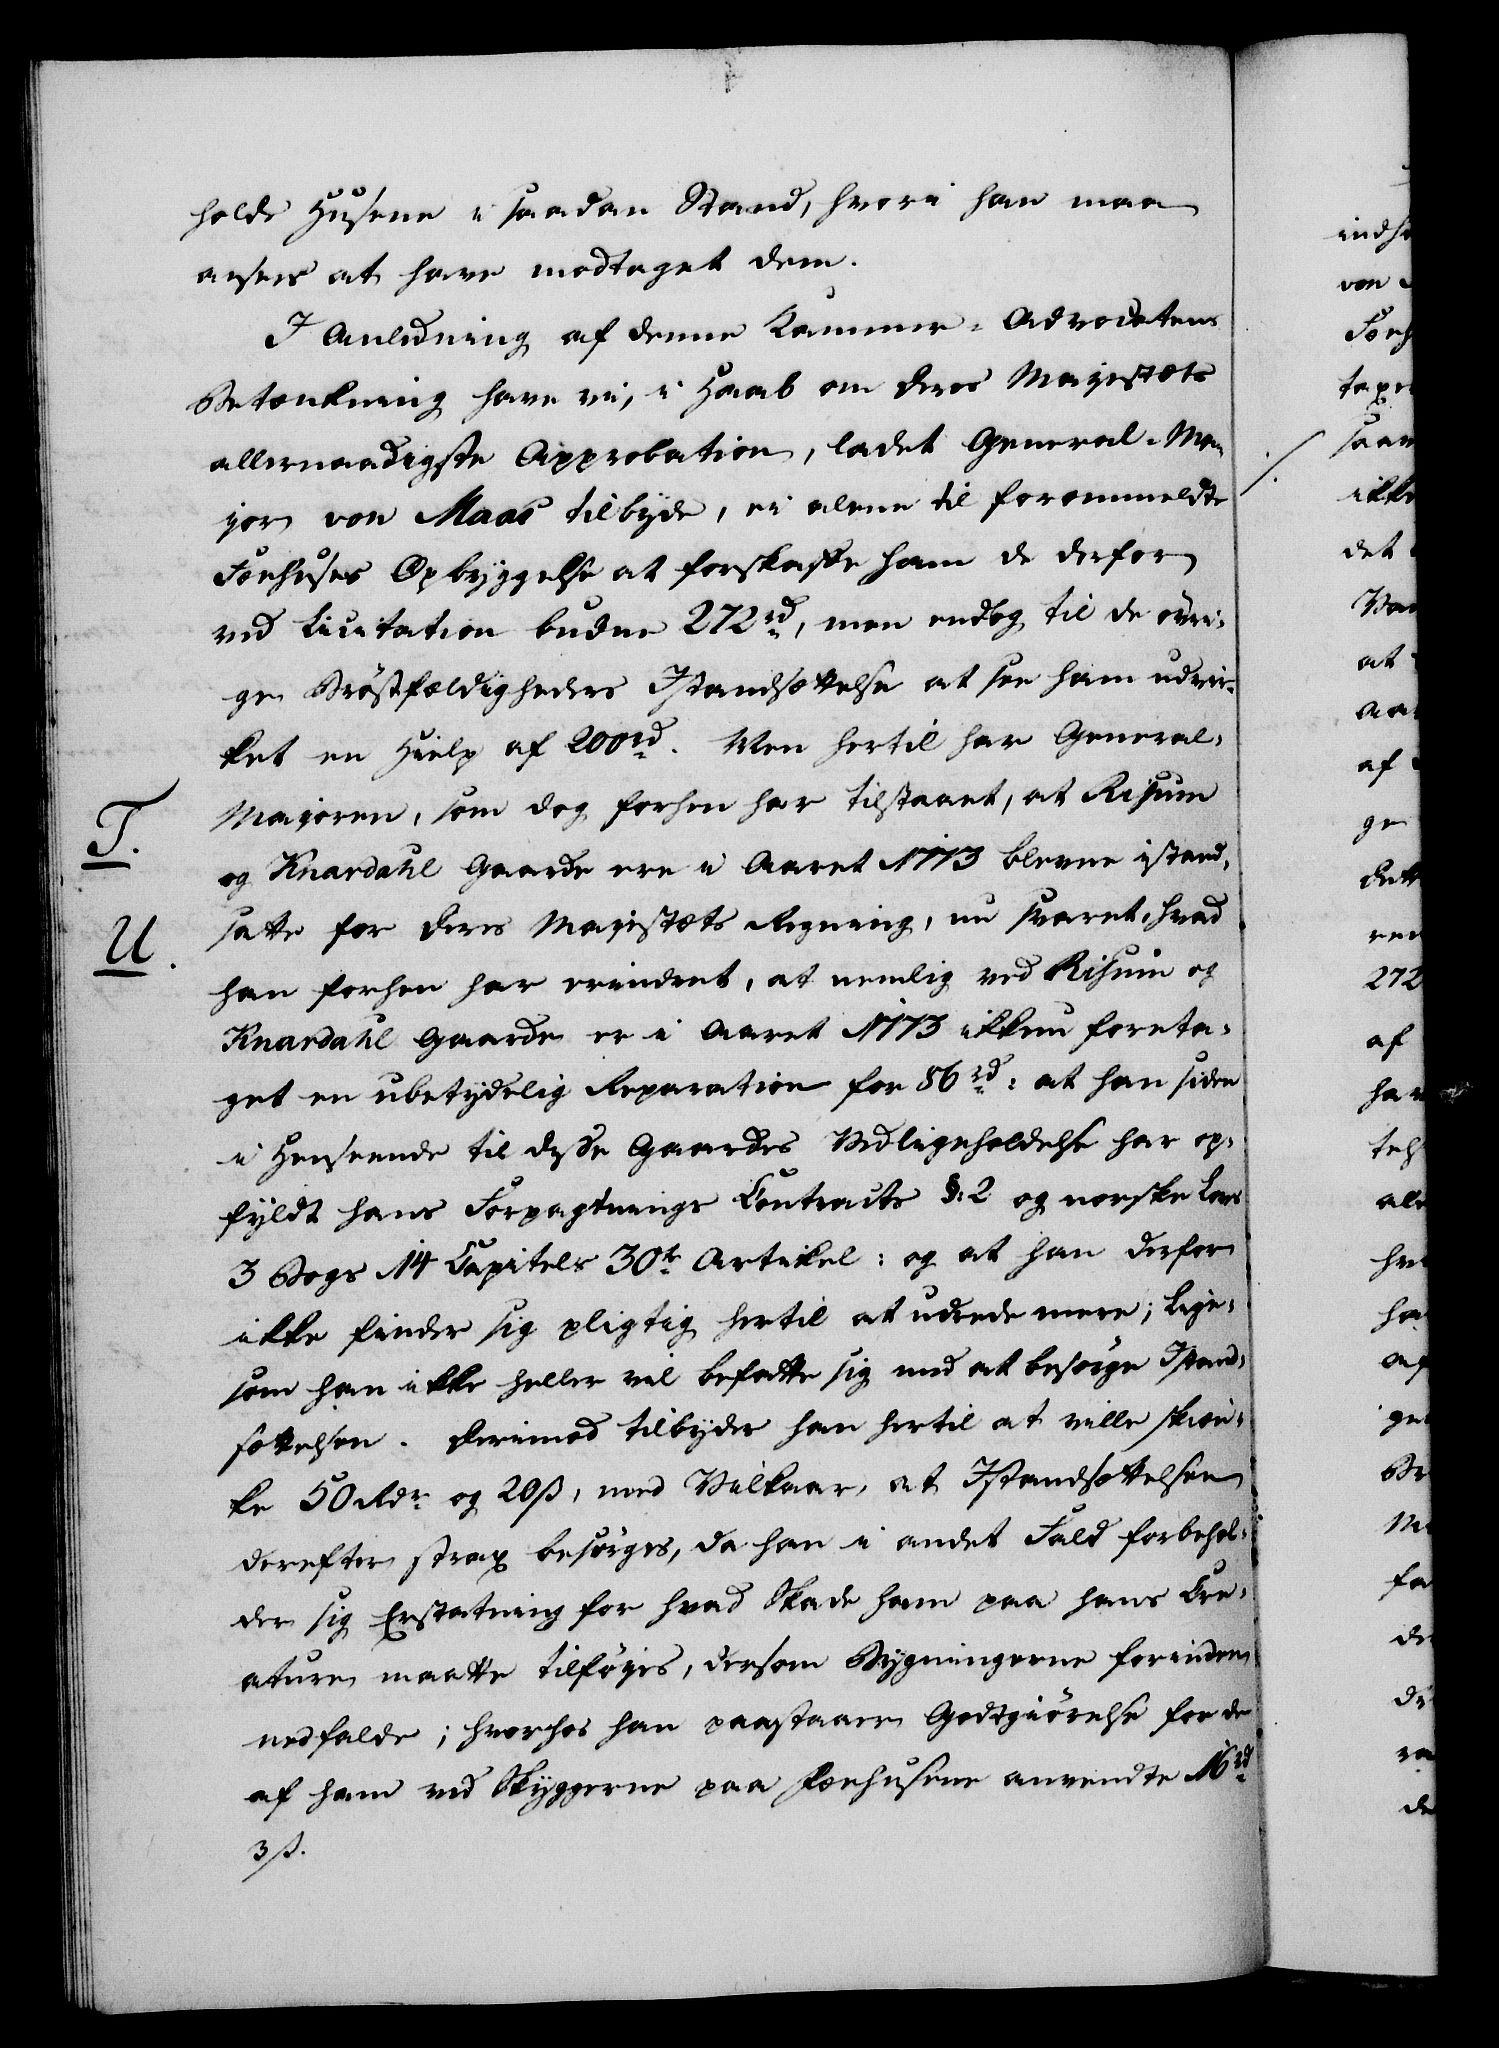 holde Husene i saadan Stand, hvori han maa
ansees at have modtaget dem.
I Anledning af denne Kammer-Advocatens
Betænkning have vi, i Haab om Deres Majestæts
allernaadigste Approbation, ladet General-Ma-
jor von Maas tilbyde, ei alene til forommeldte
Føehuses Opbyggelse at forskaffe ham de derfor
ved Licitation budne 272 rd, men endog til de øvri-
ge Brøstfældigheders Istandsættelse at see ham udvir-
ket en Hielp af 200 rd. Men hertil har General-
T. Majoren, som dog forhen har tilstaaet, at Risum
og Knardahl Gaarde ere i Aaret 1773 blevne istand-
U. satte for Deres Majestæts Regning, nu svaret, hvad
han forhen har erindret, at nemlig ved Risum og
Knardahl Gaarde er i Aaret 1773 ikkun foreta-
get en ubetydelig Reparation for 86 rd: at han siden
i Henseende til disse Gaardes Vedligeholdelse har op-
fyldt hans Forpagtnings Contracts §: 2 og norske Lovs
3 Bogs 14 Capitels 30te Artikel: og at han derfor
ikke finder sig pligtig hertil at udrede mere; lige-
som han ikke heller vil befatte sig med at besørge Istand-
sættelsen. Derimod tilbyder han hertil at ville skien-
ke 50 Rdr og 20 ß, med Vilkaar, at Istandsættelsen
derefter strax besørges, da han i andet Fald forbehol-
der sig Erstatning for hvad Skade ham paa hans Cre-
aturer maatte tilføjes, dersom Bygningerne forinden
nedfalde; hvorhos han paastaaer Godtgiørelse for de
af ham ved Skyggerne paa Føehusene anvendte 16 rd
3 ß.